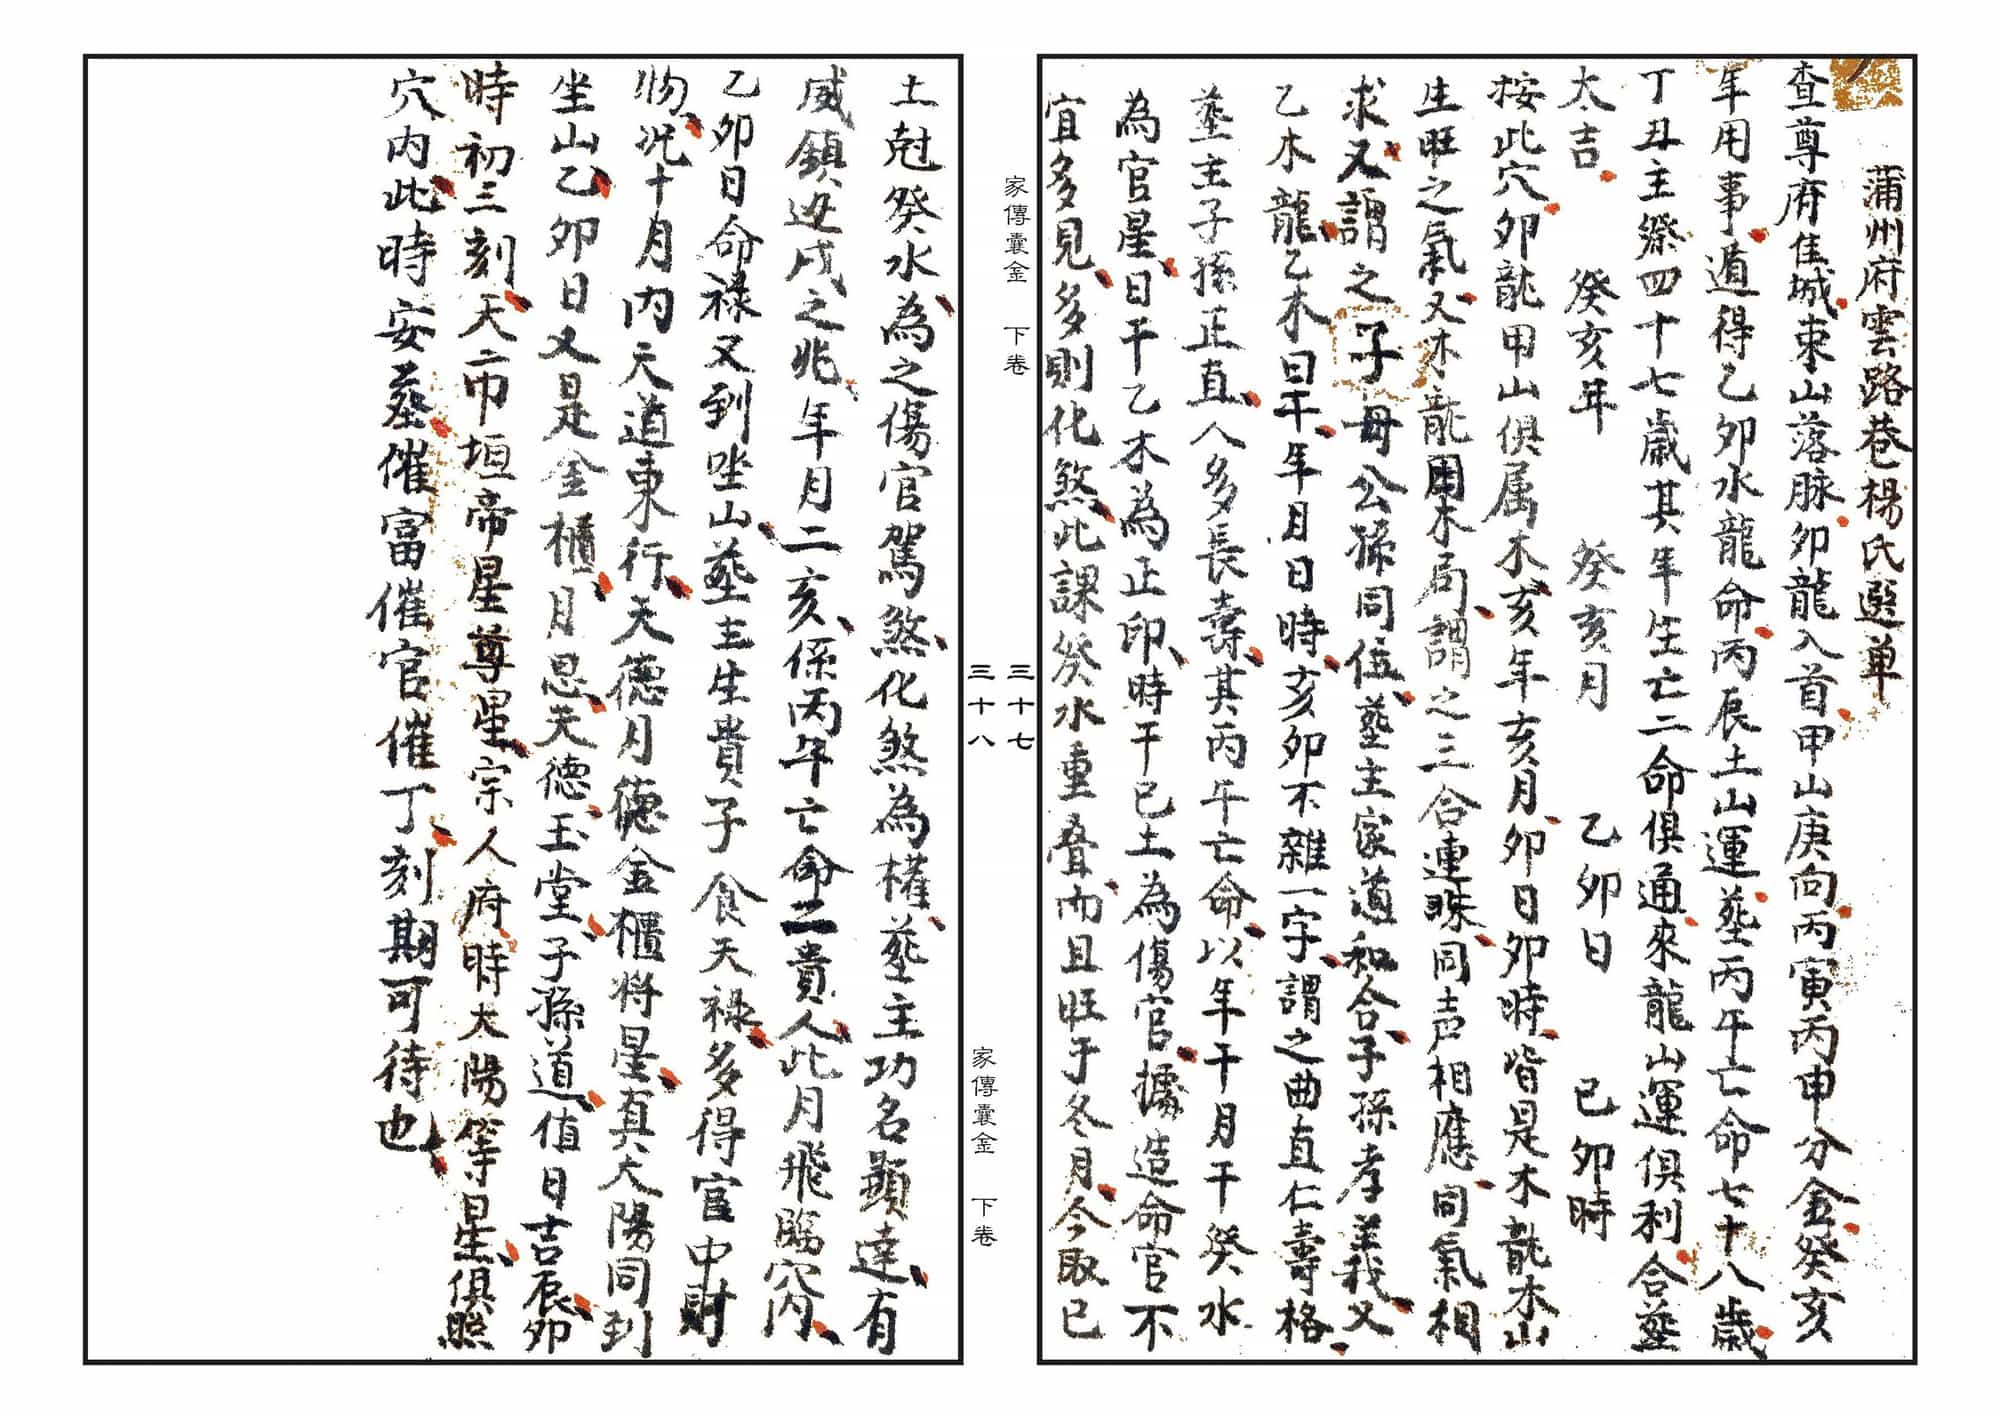 蒲州府雲路巷楊氏選单
查尊府隹城東山落脉卯龍入首甲山庚向丙寅丙申分金癸亥
年用事遁得乙卯水龍命丙辰土山運塟丙午亡命七十八歲
丁丑主祭四十七歲其年生亡二命俱通來龍山運俱利合塟
太吉 癸亥年 癸亥月 乙卯日 已卯時
按此穴卯龍甲山俱属木亥年亥月卯日卯時皆是木龍木山
生旺之氣又木龍用木局謂之三合連珠同声相應同氣相
求又謂之子母公孫同位塟主家道和合子孫孝義又
乙木龍乙木日干年月日時亥卯不雜一字謂之曲直仁壽格
塟主子孫正直人多長壽其丙午亡命以年干月干癸水
為官星日干乙木為正印時干已土為傷官據造命官不
宜多見多則化煞此課癸水重叠而且旺于冬月今取已
土尅癸水為之傷官駕煞化煞為權塟主功名顯達有
威鎮边戍之兆年月二亥係丙午亡命之貴人此月飛臨穴内
乙卯日命禄又到坐山塟主生貴子食天禄多得官中財
物况十月内天道東行天德月德金櫃将星真太陽同到
坐山乙卯日又是金櫃月恩天德玉堂子孫道值日吉辰卯
時初三刻天帀垣帝星尊星宗人府時太陽等星俱照
穴内此時安塟催富催官催丁刻期可待也
家傳囊金 下卷
三十七
三十八
家傳囊金 下卷